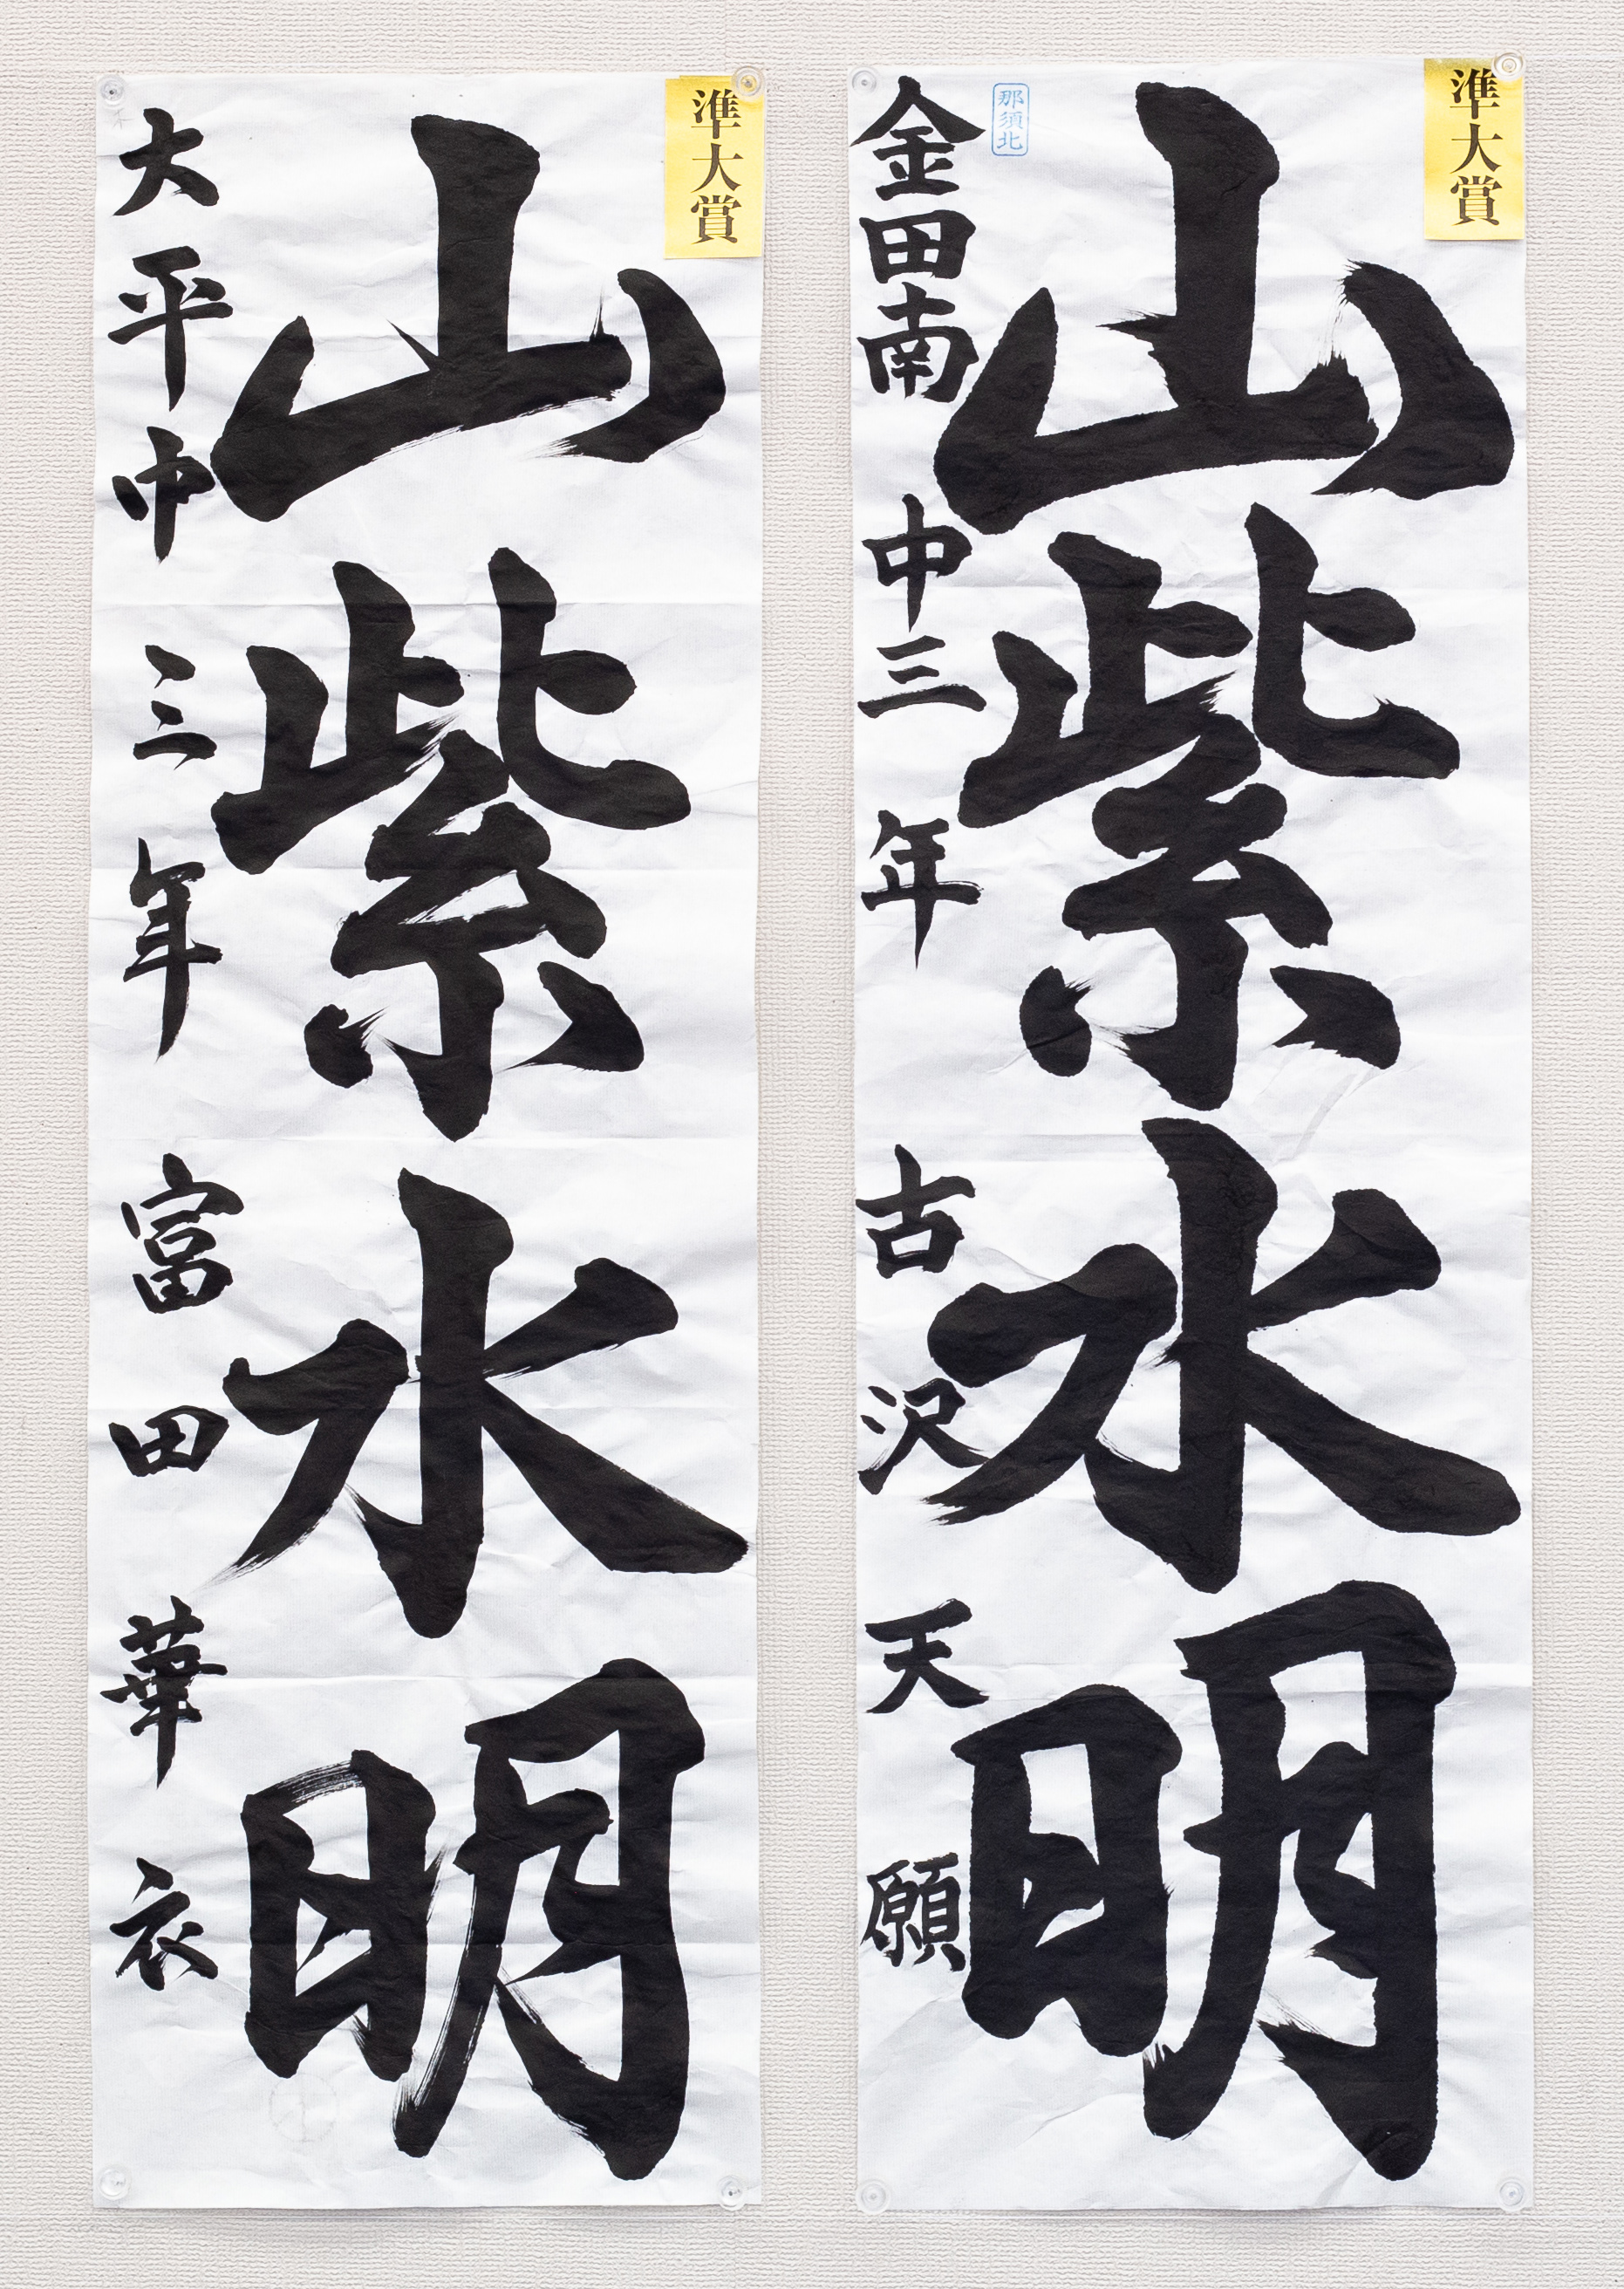 準大賞
山紫水明
那須北
金田南中三年 古沢天願
準大賞
山紫水明
大平中 三年 富田華衣